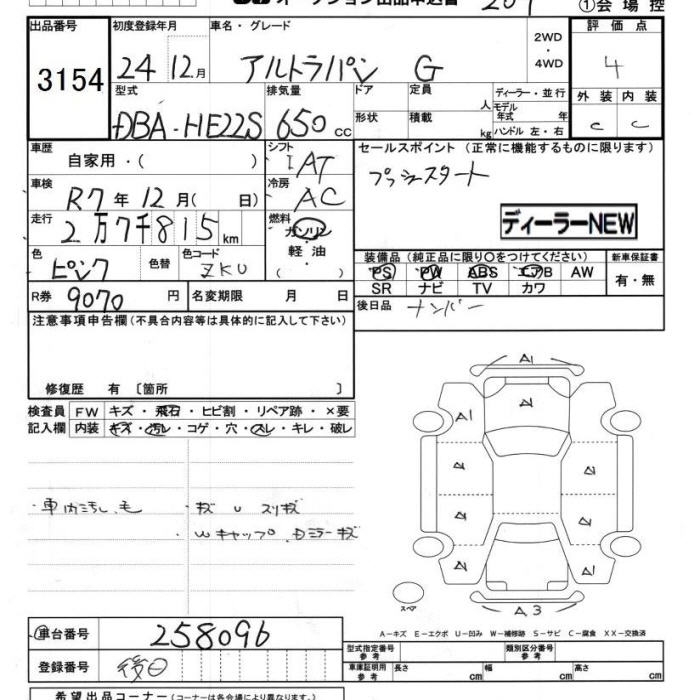 ①会場控
出品番号 初度登録年月 車名・グレード 評価点
3154 24 12月 アルトラパン G 2WD・4WD 4
型式 排気量 ドア 定員 人 ディーラー・並行 外装 内装
DBA-HE22S 650cc 形状 積載 kg モデル年式 年 ハンドル 左・右 C C
車歴 自家用・( ) シフト IAT セールスポイント (正常に機能するものに限ります)
車検 R7年12月( 日) 冷房 AC プッシュスタート
走行 2万7千815km 燃料 ガソリン・軽油・( ) ディーラーNEW
色 ピンク 色替 色コード ZKU 装備品 (純正品に限り○をつけてください) 新車保証書
PS PW ABS エアB AW 有・無
SR ナビ TV カワ
R券 9070円 名変期限 月 日 後日品 ナンバー
注意事項申告欄(不具合内容等は具体的に記入して下さい)
修復歴 有 〔箇所 〕
検査員 FW キズ・飛石・ヒビ割・リペア跡・×要
記入欄 内装 キズ・汚レ・コゲ・穴・スレ・キレ・破レ
A1
A1
・車内汚し、毛 ・キズ U スリキズ
Wキャップ、Dミラーキズ
A1
スペア A3
A-キズ E-エクボ U-凹み W-補修跡 S-サビ C-腐食 XX-交換済
車台番号 258096
型式指定番号 参考 類別区分番号 参考
登録番号 後日 車庫証明用 参考 長さ cm 幅 cm 高さ cm
希望出品コーナー(コーナーは各会場により異なります。)